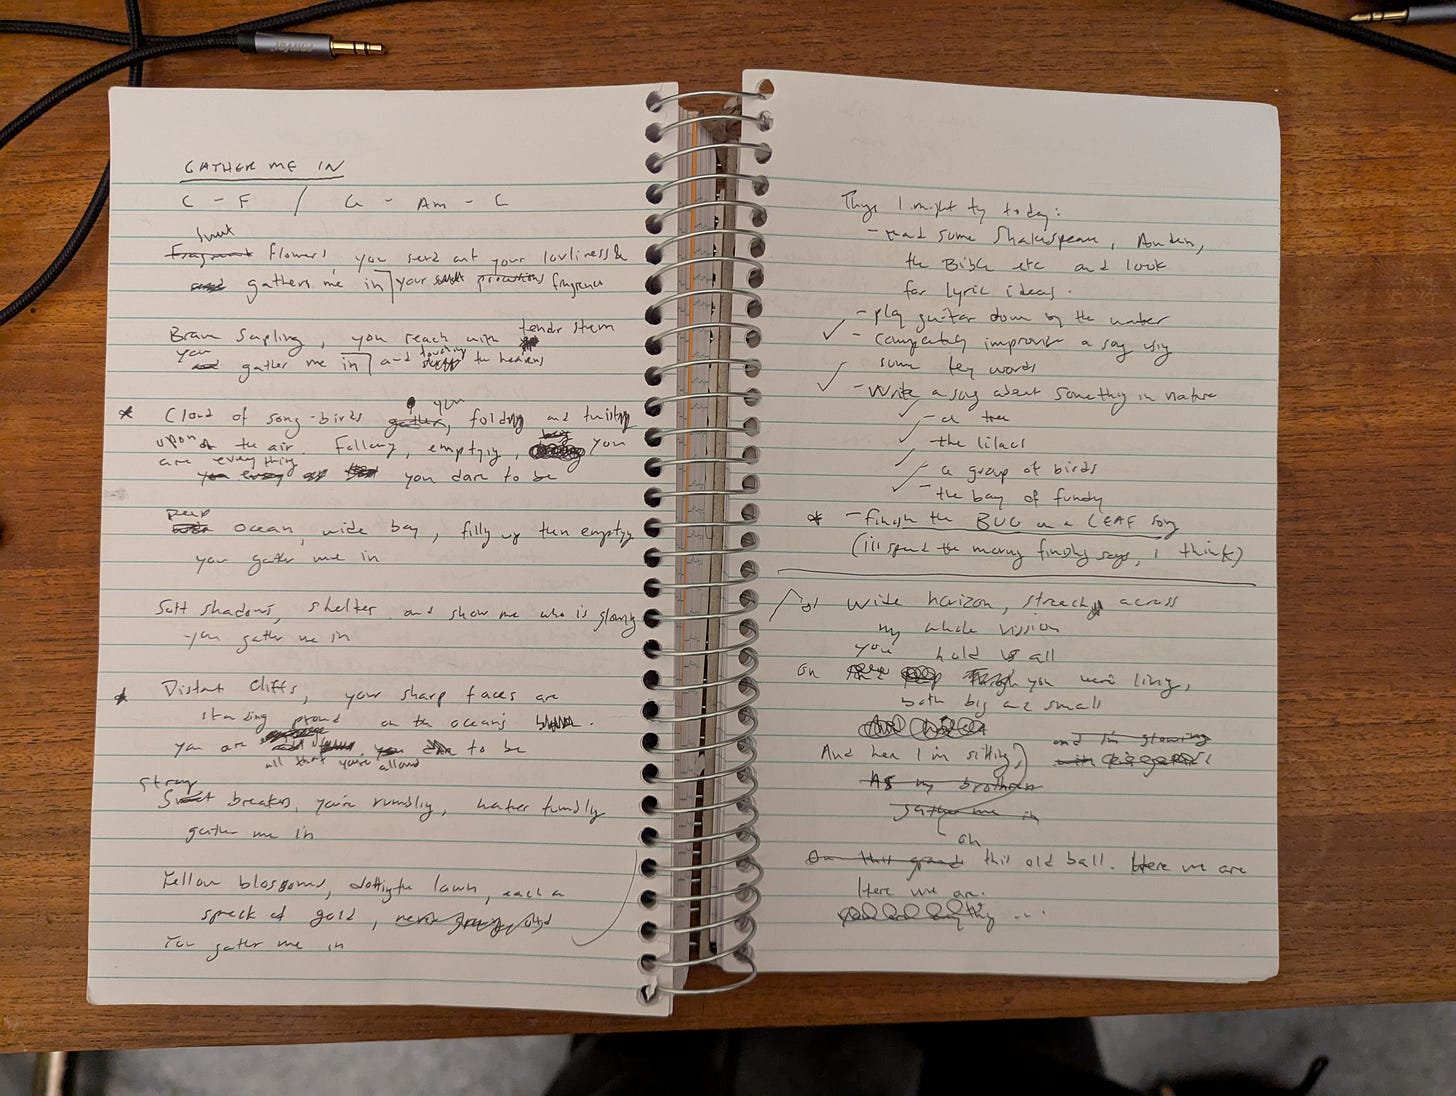 GATHER ME IN
C - F / G - Am - C
Sweet
Fragrant flowers, you send out your lovliness &
and gathers me in your sweet precious fragrance
Brave sapling, you reach with tender stem
you
and gather me in and touching the heavens
* Cloud of song-birds gather, you folding and twisting
upon the air. Following, emptying, you
are everything
you every you dare to be
Deep
ocean, wide bay, filling up then emptying
you gather me in
Soft shadows, shelter and show me who is glowing
you gather me in
* Distant cliffs, your sharp faces are
standing proud on the ocean's
you are you dare to be
all that you're allowed
Strong
Sweet breakers, you're rumbling, water tumbling
gather me in
Yellow blossoms, dotting the lawn, each a
speck of gold, never
You gather me in
Things I might try today:
- read some Shakespeare, Auden,
the Bible etc and look
for lyric ideas.
- play guitar down by the water
✓ - completely improvise a song using
some key words
✓ - Write a song about something in nature
✓ - a tree
✓ - the lilacs
✓ - a group of birds
✓ - the bay of fundy
* - finish the BUG on a LEAF song
(i'll spend the morning finishing songs, I think)
Wide horizon, streching across
my whole vission
you hold us all
on Though you were living,
both big and small
And here I'm sitting, and I'm glowing
with
As my brothers
gather me in
on
On this grand this old ball. Here we are
Here we are.
...
JSAUX